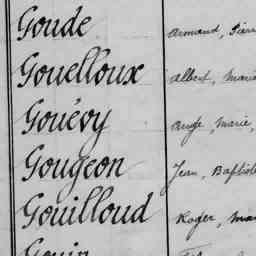 Goude Armand, Pierre
Gouelloux Albert, Marie
Gouévy Ange, Marie,
Gougeon Jean, Baptiste
Gouilloud Roger, Mar
Gouin